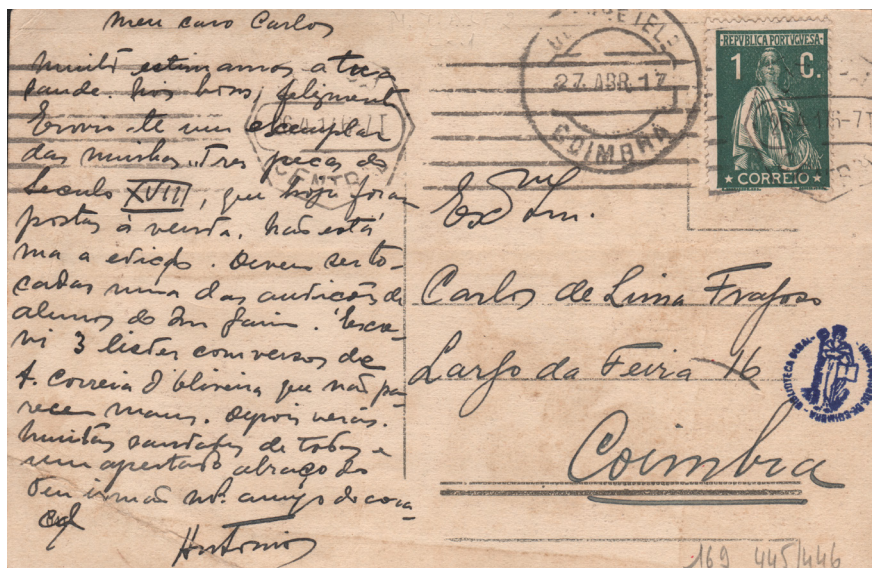 Meu caro Carlos
Muito estimamos a tua
saude. Nos bons, felizmente
Envio-te um exemplar
das minhas Tres peças do
Seculo XVIII, que hoje foram
postas à venda. Não está
má a edição. Devem ser to-
cadas numa das audições de
alunos do
vi 3 lieder com versos de
A. Correia d'Oliveira que não pa-
recem maus. Depois verás.
Muitas saudades de todos e
um apertado abraço do
teu irmão mto. amigo do cora-
ção
Antonio
27. ABR. 17
COIMBRA
CENTRAL
REPVBLICA PORTVGVESA
1 C.
CORREIO
Exmo Snr.
Carlos de Lima Fragoso
Largo da Feira 16
Coimbra
BIBLIOTECA GERAL - UNIVERSIDADE DE COIMBRA
169 445/446